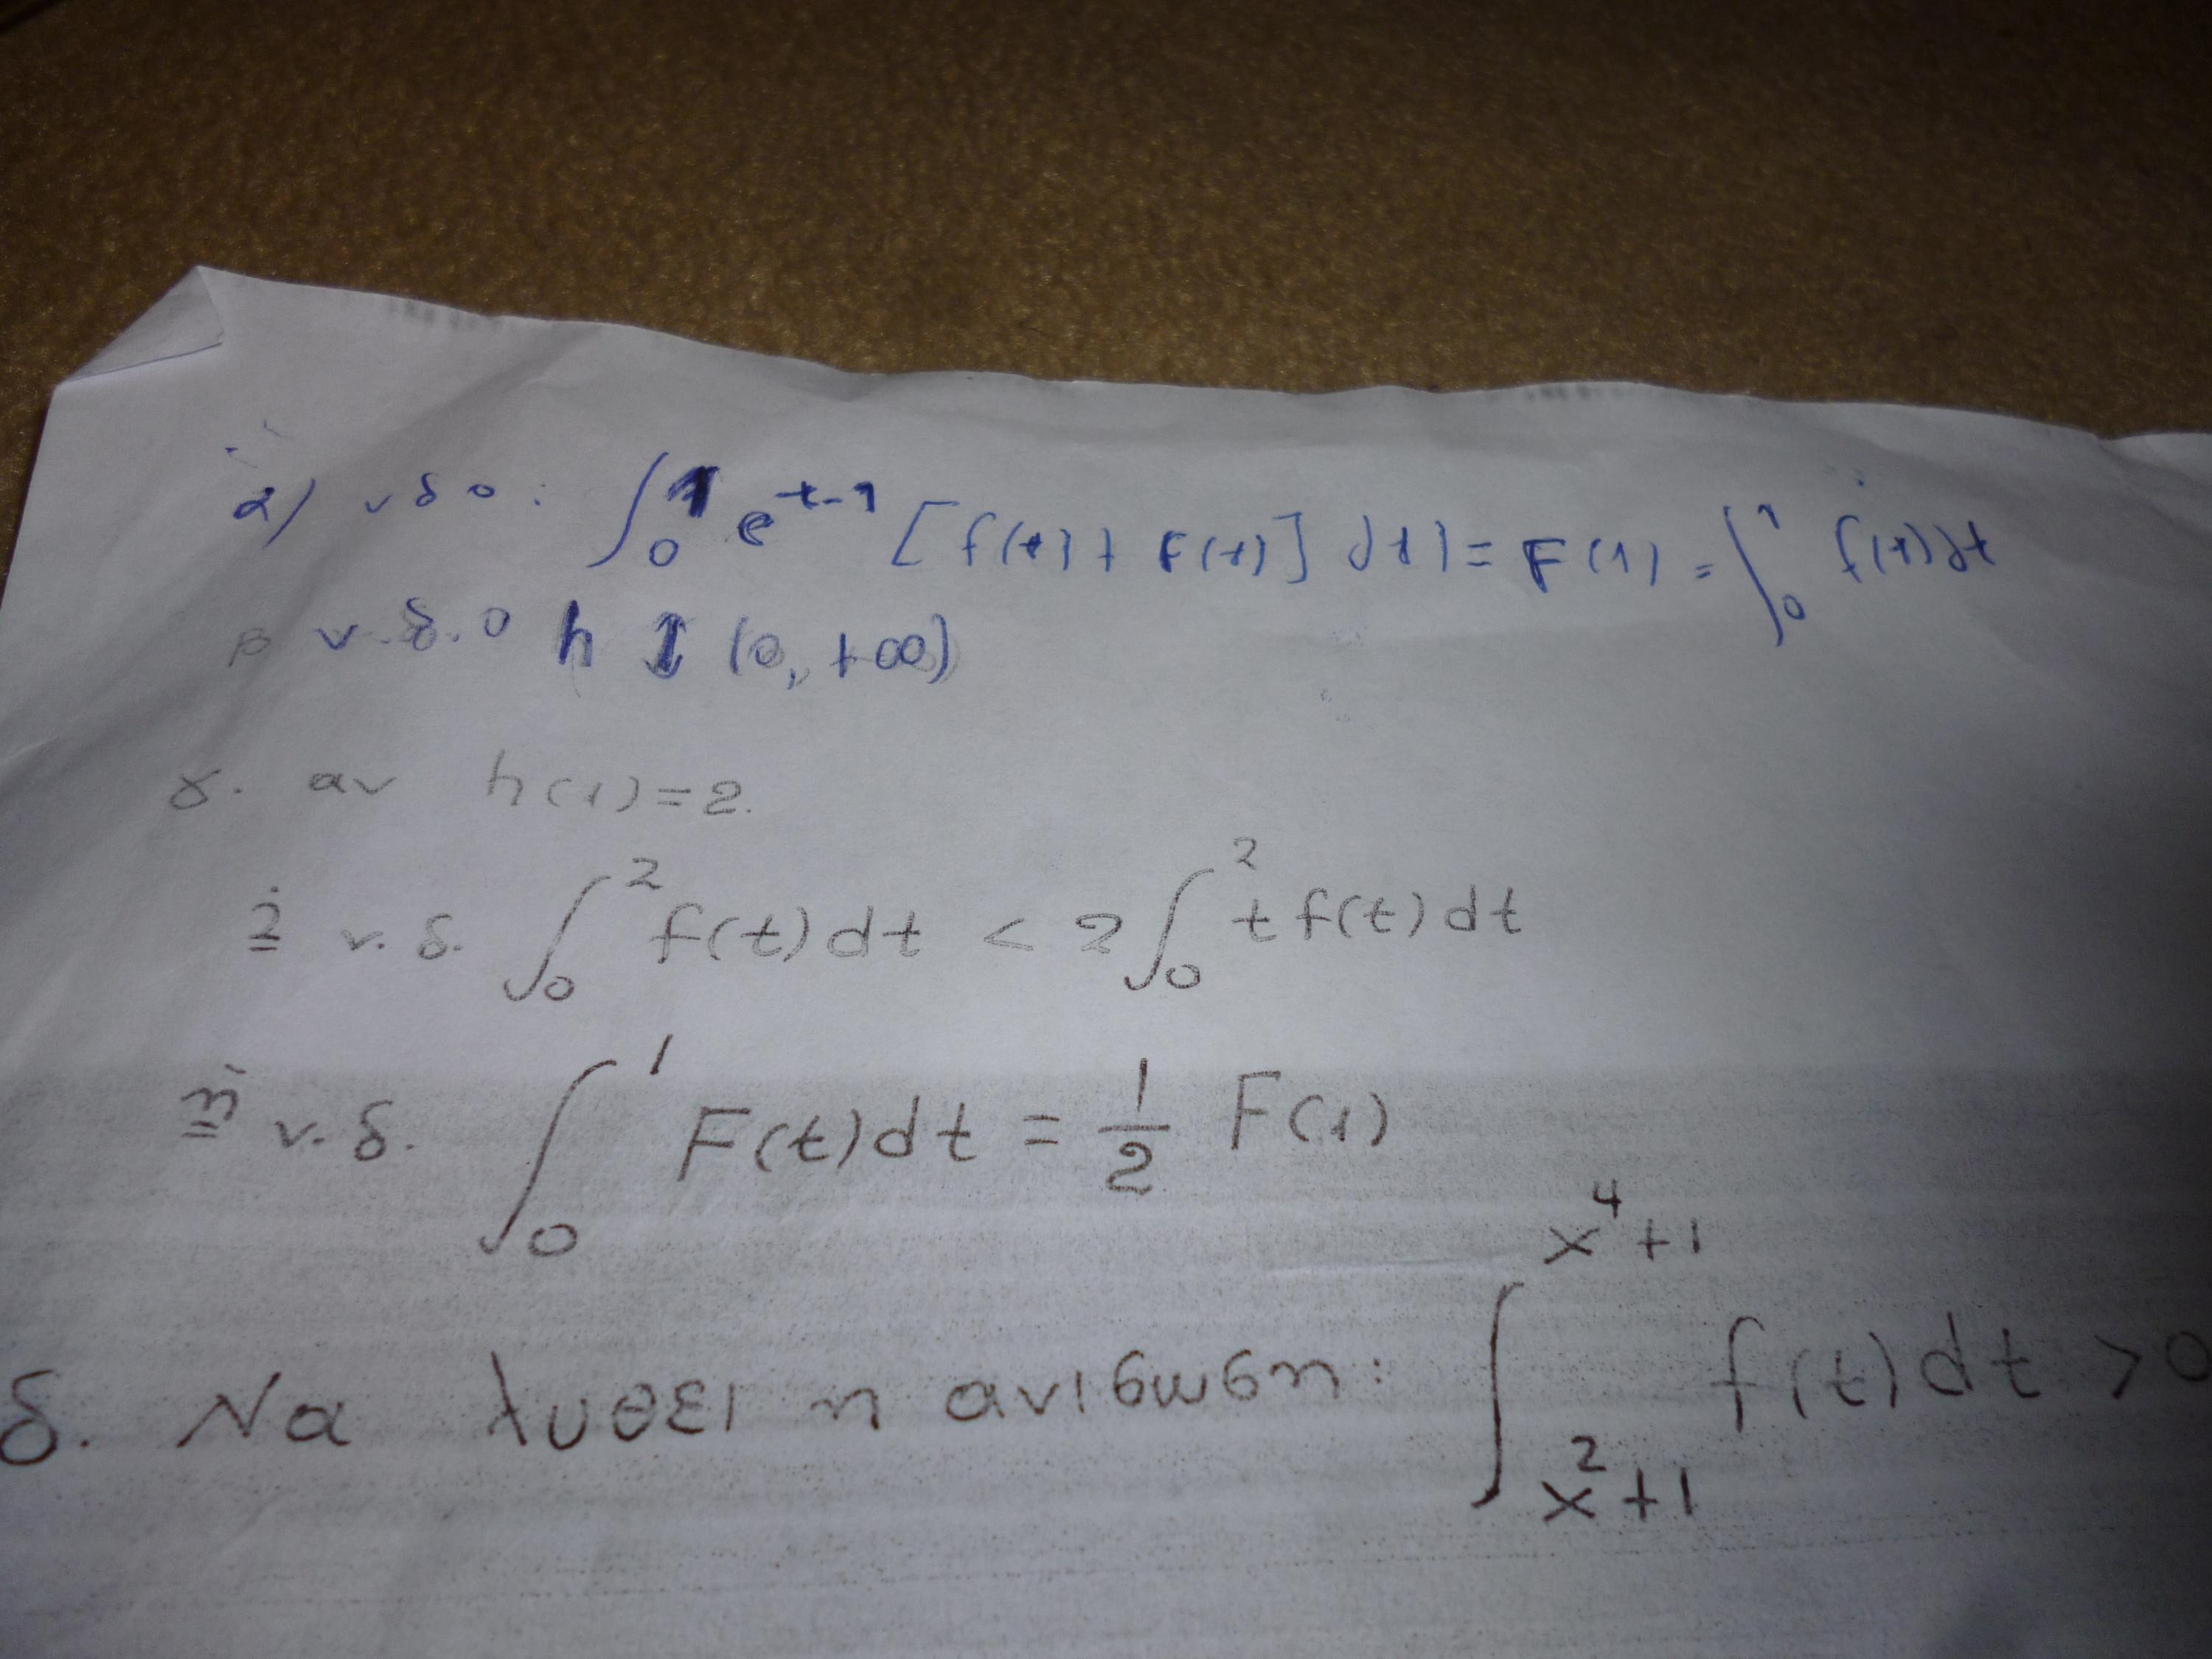 α) νδο: ∫₀¹ e^{t-1} [f(t) + F(t)] dt) = F(1) = ∫₀¹ f(t)dt
β ν.δ.ο h ↕ (0, +∞)
γ. αν h(1)=2.
i ν.δ. ∫₀² f(t)dt < 2∫₀² t f(t)dt
ii ν.δ. ∫₀¹ F(t)dt = 1/2 F(1)
δ. Να λυθεί η ανίσωση: ∫_{x²+1}^{x⁴+1} f(t)dt >0